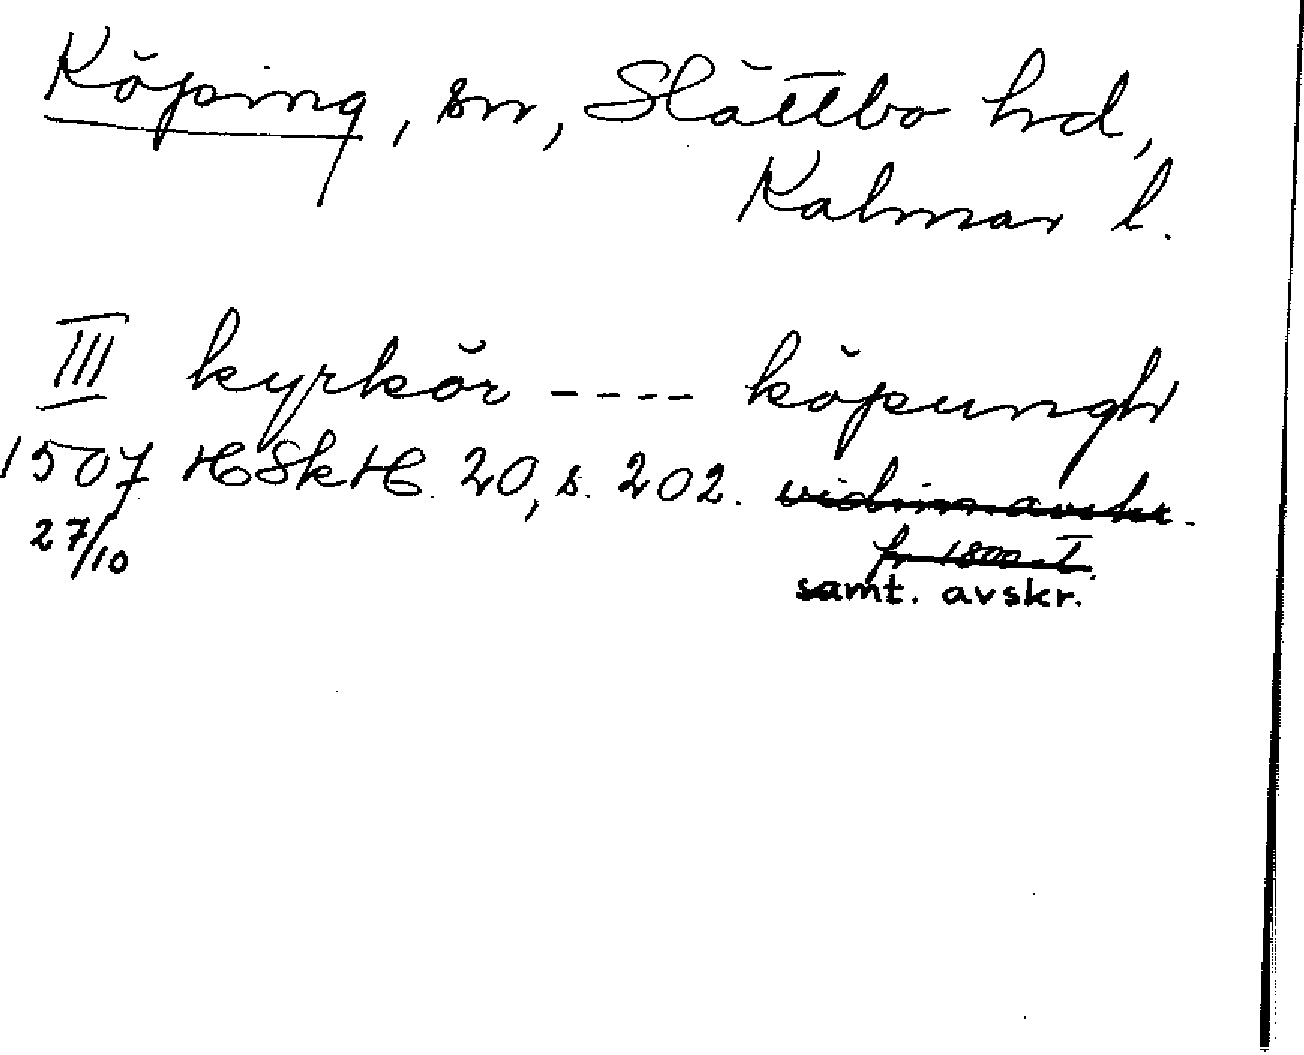 Köping, sn, Slättbo hd,
Kalmar l.
III kyrkör ---- köpungh
1507 HSkH 20, s. 202. vidim. avskr.
27/10 fr 1800-t.
samt. avskr.